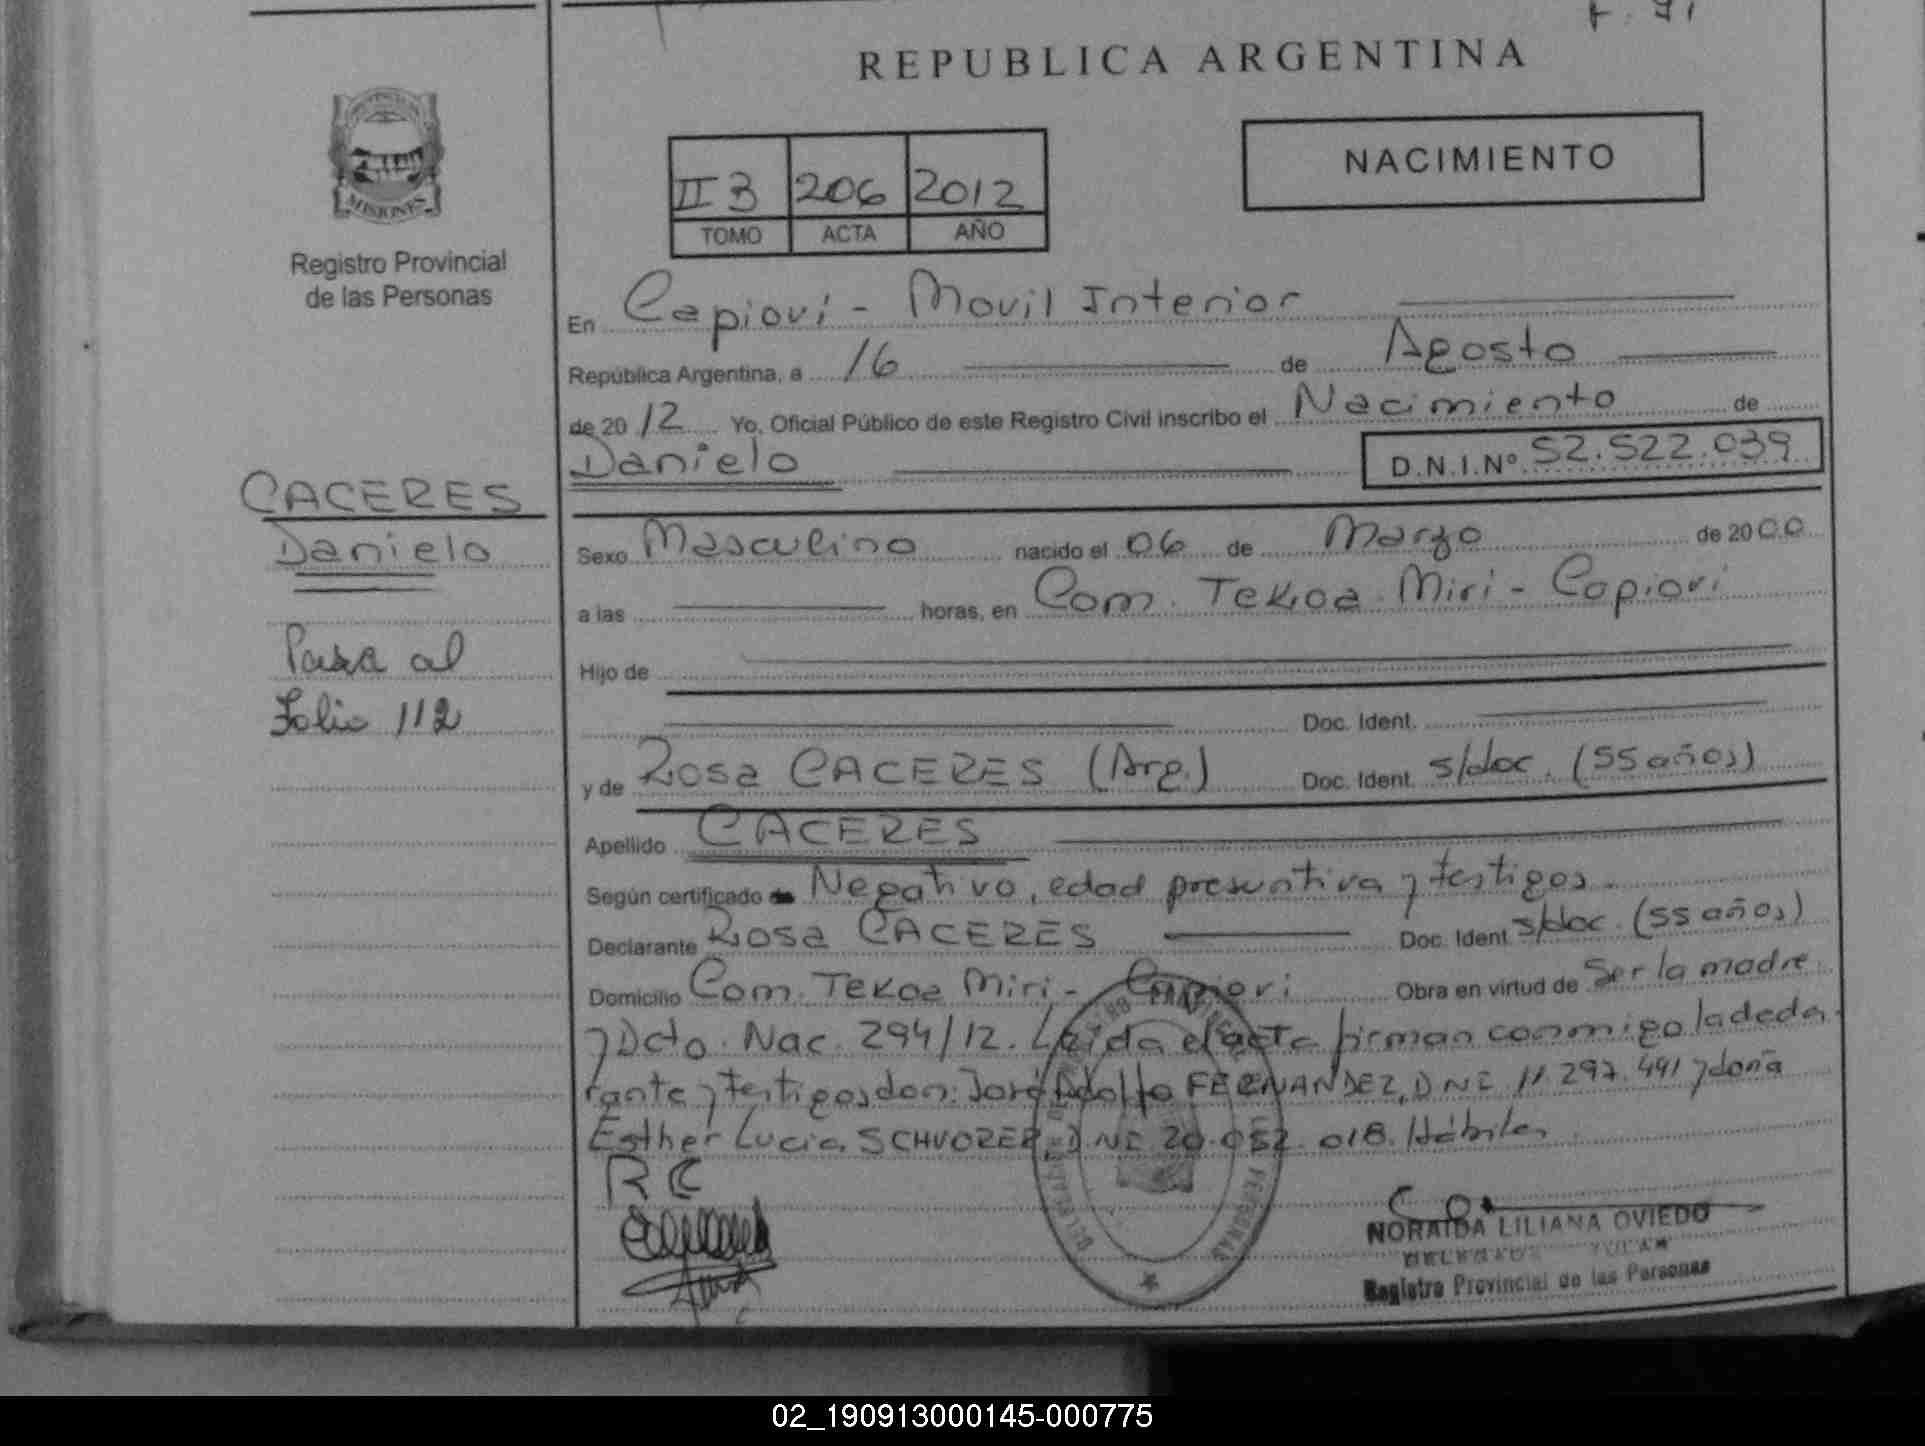 F. 71
REPUBLICA ARGENTINA
PROVINCIA DE
MISIONES
Registro Provincial
de las Personas
NACIMIENTO
II B 206 2012
TOMO ACTA AÑO
En Capiovi - Movil Interior
República Argentina, a 16 de Agosto
de 2012 Yo, Oficial Público de este Registro Civil inscribo el Nacimiento de
Danielo D.N.I.Nº 52.522.039
CACERES
Danielo
Pasa al
Folio 112
Sexo Masculino nacido el 06 de Marzo de 2000
a las horas, en Com. Tekoa Miri - Capiovi
Hijo de
Doc. Ident.
y de Rosa CACERES (Arg.) Doc. Ident. s/doc. (55 años)
Apellido CACERES
Según certificado de Negativo, edad presuntiva y testigos.
Declarante Rosa CACERES Doc. Ident s/doc. (55 años)
Domicilio Com. Tekoa Miri - Capiovi Obra en virtud de Ser la madre
y Dcto. Nac. 294/12. Leida el acta firman conmigo la decla-
rante y testigos don: José Adolfo FERNANDEZ, DNI 11.297.441 y doña
Esther Lucia SCHVORER, DNI 20.052.018. Hábiles
RC
NORAIDA LILIANA OVIEDO
DELEGADA TITULAR
Registro Provincial de las Personas
PERSONAS
02_190913000145-000775